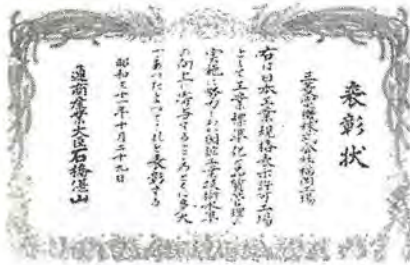 表彰状
三菱電機株式会社福岡工場
右は日本工業規格表示許可工場
として工業標準化と品質管理の
実施に努力しわが国鉱工業技術水準
の向上に寄与するところとくに多大
であつたよつてこれを表彰する
昭和三十一年十月二十九日
通商産業大臣石橋湛山